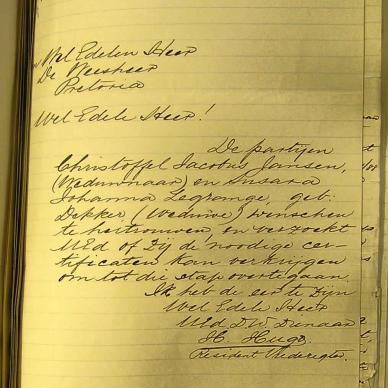 Wel Edelen Heer
De Weesheer
Pretoria
Wel Edele Heer!
De partijen
Christoffel Jacobus Jansen,
(Weduwnaar) en Susara
Johanna Legrange, geb:
Dekker (Weduwe) wenschen
te hertrouwen, en verzoekt
UEd of Zij de noodige cer-
tificaten kan verkrijgen
om tot die etap over te gaan.
Ik heb de eer te Zijn
Wel Edele Heer
UEd DW Dienaar
H. Hugo.
Resident Vrederegter